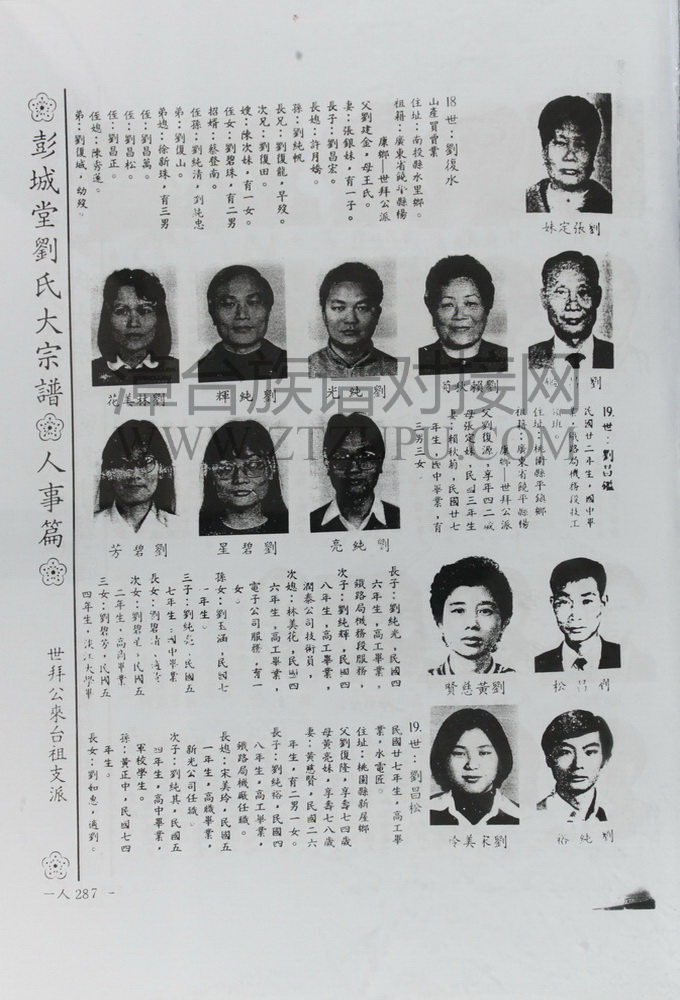 彭城堂劉氏大宗譜 人事篇
世拜公來台祖支派
－人287－
18世：劉復水
山產買賣業
住址：南投縣水里鄉。
祖籍：廣東省饒平縣楊
康鄉—世拜公派
父劉建金，母王氏。
妻：張銀妹，有一子。
長子：劉昌宏。
長媳：許月嬌。
孫：劉純帆
長兄：劉復龍，早歿。
次兄：劉復田。
嫂：陳次妹，有一女。
姪女：劉碧珠，有二男
招婿：蔡登南。
姪孫：劉純清，劉純忠
弟：劉復山。
弟媳：徐新珠，育三男
姪：劉昌萬。
姪：劉昌松。
姪：劉昌正。
姪媳：陳秀蓮。
弟：劉復城，幼歿。
劉張定妹
劉
劉賴秋菊
劉純光
劉純輝
劉林美花
19.世：劉昌鑑
民國廿二年生，國中畢
業，鐵路局機務段技工
領班
住址：桃園縣平鎮鄉
祖籍：廣東省饒平縣楊
康鄉—世拜公派
父劉復源，享年四二歲
母張定妹，民國三年生
妻：賴秋菊，民國廿七
年生，國中畢業，育
三男三女。
劉純亮
劉碧星
劉碧芳
長子：劉純光，民國四
六年生，高工畢業，
鐵路局機務段服務，
次子：劉純輝，民國四
八年生，高工畢業，
潤泰公司技術員，
次媳：林美花，民國四
六年生，高工畢業，
電子公司服務，育一
女。
孫女：劉玉涵，民國七
一年生。
三子：劉純亮，民國五
七年生，國中畢業
長女：劉碧清，
次女：劉碧星，民國五
二年生，高商畢業
三女：劉碧芳，民國五
四年生，淡江大學畢
劉昌松
劉黃慈賢
19.世：劉昌松
民國廿七年生，高工畢
業，水電匠。
住址：桃園縣新屋鄉
父劉復隆，享壽七四歲
母黃亮妹，享壽七八歲
妻：黃慈賢，民國二六
年生，育二男一女。
長子：劉純裕，民國四
八年生，高工畢業，
鐵路局機廠任職。
長媳：宋美玲，民國五
一年生，高職畢業，
新光公司任職。
次子：劉純其，民國五
四年生，高中畢業，
軍校學生。
孫：黃正中，民國七四
年生。
長女：劉如惠，適劉。
劉純裕
劉宋美令
漳台族谱对接网
WWW.ZTZUPU.COM